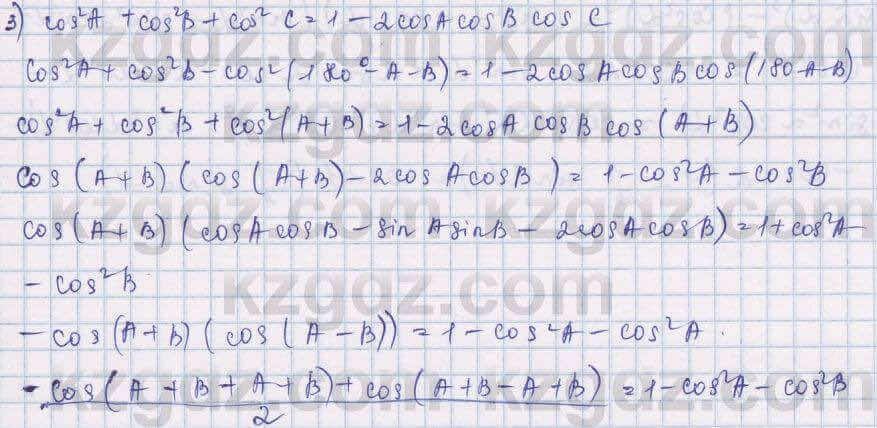 3) cos²A + cos²B + cos² C = 1 - 2cosA cosB cos C
cos²A + cos²B - cos²(180° - A - B) = 1 - 2cosA cosB cos(180-A-B)
cos²A + cos²B + cos²(A+B) = 1 - 2cosA cosB cos(A+B)
cos(A+B)(cos(A+B) - 2cosAcosB) = 1 - cos²A - cos²B
cos(A+B)(cosAcosB - sinAsinB - 2cosAcosB) = 1 + cos²A -
- cos²B
- cos(A+B)(cos(A-B)) = 1 - cos²A - cos²A.
- cos(A+B+A+B) + cos(A+B-A+B) / 2 = 1 - cos²A - cos²B
kzgdz.com
kzgdz.com